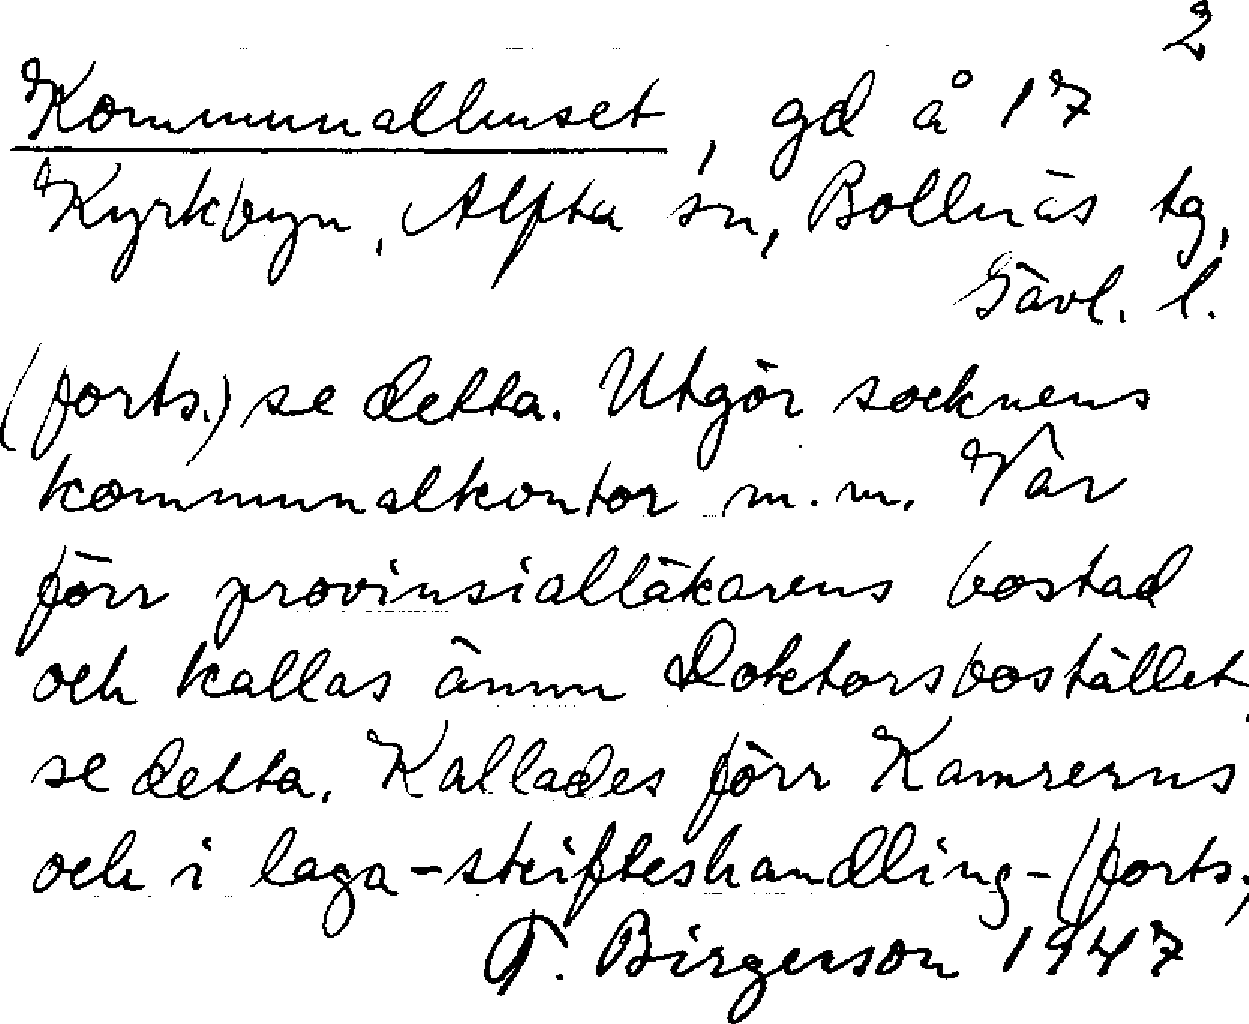 2
Kommunalhuset, gd å 17
Kyrkbyn, Alfta sn, Bollnäs tg,
Gävl. l.
(forts.) se detta. Utgör socknens
kommunalkontor m.m. Var
förr provinsialläkarens bostad
och kallas ännu Doktorsbostället,
se detta. Kallades förr Kamrerns
och i laga-skifteshandling- (forts.)
T. Birgerson 1947